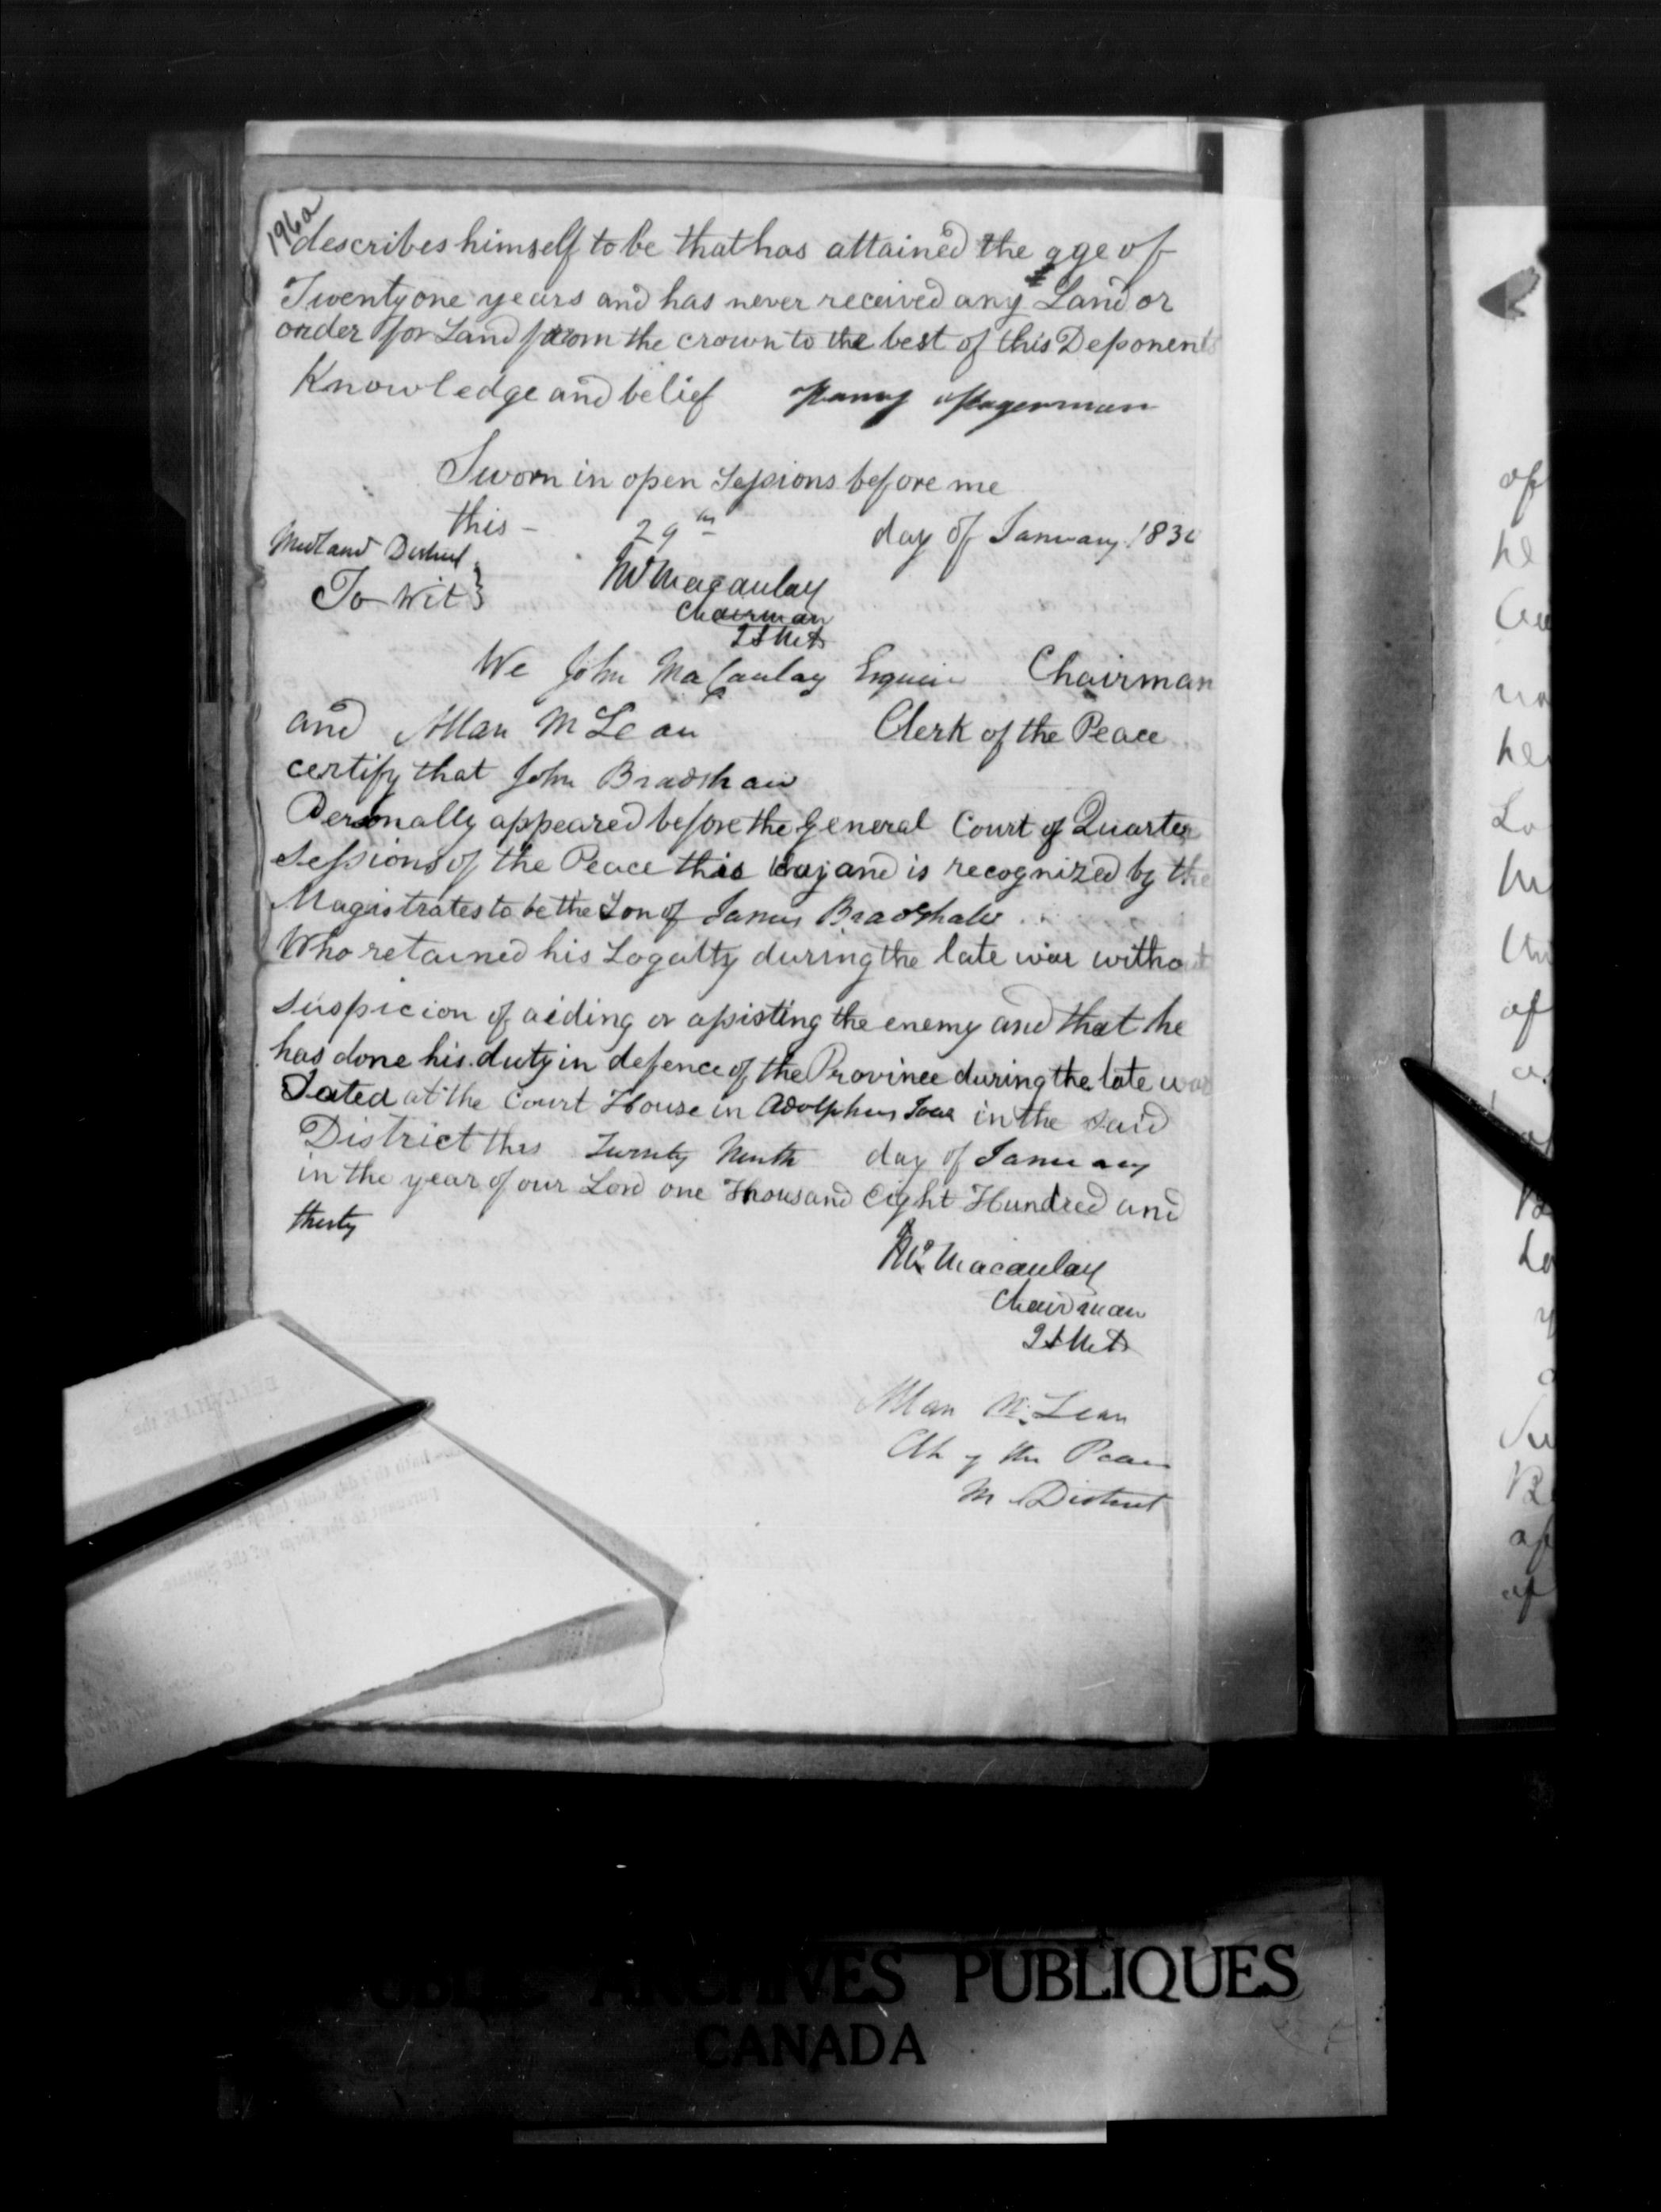 196a
describes himself to be that has attained the age of
Twenty one years and has never received any Land or
order for Land from the crown to the best of this Deponents
Knowledge and belief Hagerman
Sworn in open Sessions before me
this - 29th day of January 1830
Midland District
To Wit
Macaulay
Chairman
We John MaCaulay Esquire Chairman
and Allan McLean Clerk of the Peace
certify that John Bradshaw
Personally appeared before the General Court of Quarter
Sessions of the Peace this Day and is recognized by the
Magistrates to be the Son of James Bradshaw
Who retained his Loyalty during the late war without
suspicion of aiding or assisting the enemy and that he
has done his duty in defence of the Province during the late war
Dated at the Court House in Adolphus Town in the said
District this Twenty Ninth day of January
in the year of our Lord one Thousand Eight Hundred and
thirty
Macaulay
Chairman
Allan McLean
Clk of the Peace
M. District
PUBLIC ARCHIVES PUBLIQUES
CANADA